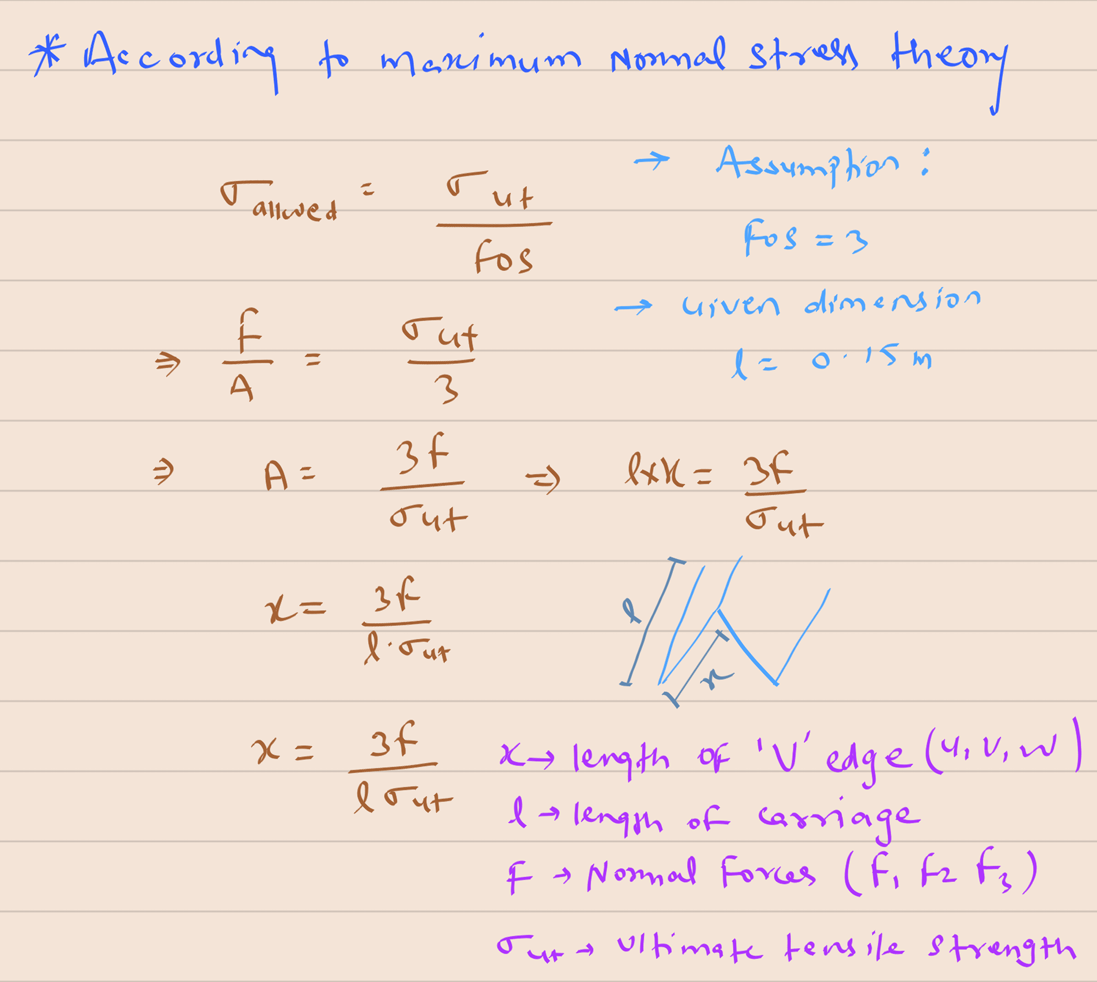 * According to maximum Normal stress theory
σallwed = σut / fos
→ Assumption :
fos = 3
→ Given dimension
l = 0.15 m
⇒ f / A = σut / 3
⇒ A = 3f / σut ⇒ l×x = 3f / σut
x = 3f / l·σut
l
x
x = 3f / l σut
x → length of 'V' edge (u, v, w)
l → length of carriage
F → Normal forces (f1 f2 f3)
σut → ultimate tensile strength